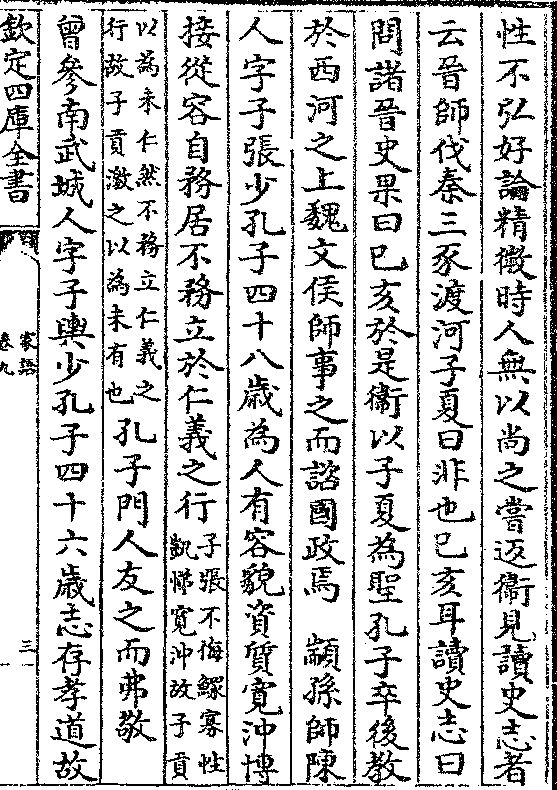 性不弘好論精微時人無以尚之嘗返衞見讀史志者
云晉師伐秦三豕渡河子夏曰非也己亥耳讀史志曰
問諸晉史果曰己亥於是衞以子夏為聖孔子卒後教
於西河之上魏文侯師事之而諮國政焉　顓孫師陳
人字子張少孔子四十八歲為人有容貌資質寛沖博
接從容自務居不務立於仁義之行子張不侮鰥寡性凱悌寛沖故子貢
以為未仁然不務立仁義之行故子貢激之以為未有也孔子門人友之而弗敬
曾參南武城人字子輿少孔子四十六歲志存孝道故
欽定四庫全書
家語
卷九
三